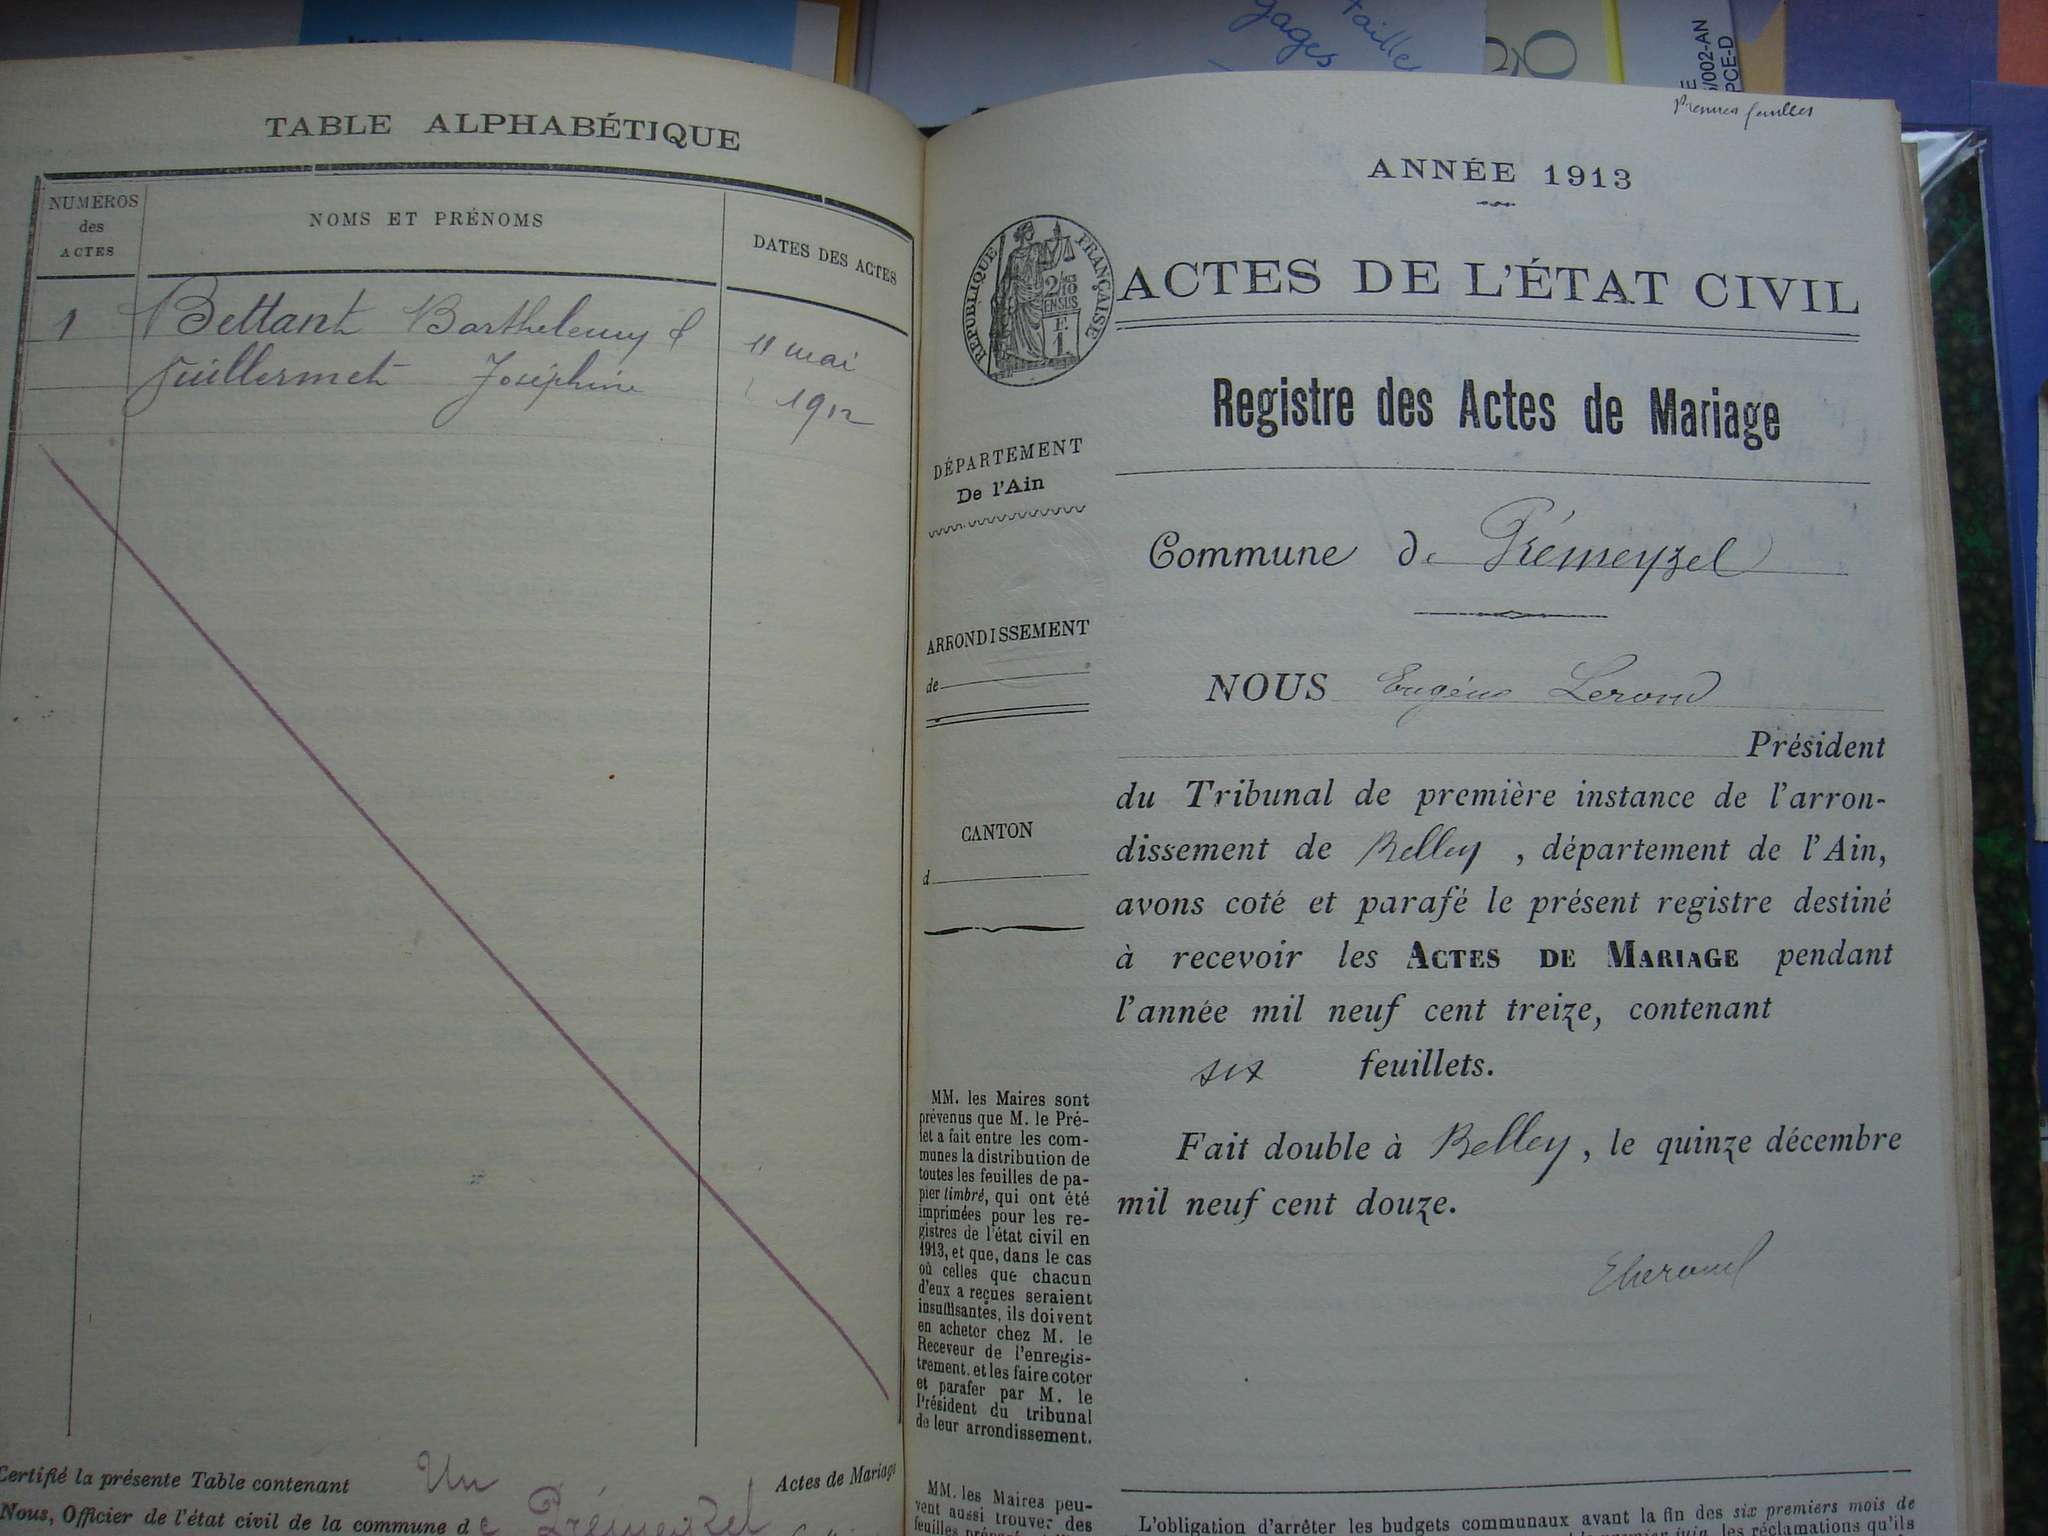 taille
gages
20
E
/002-AN
PCE-D
TABLE ALPHABÉTIQUE
NUMÉROS
des
ACTES
NOMS ET PRÉNOMS
DATES DES ACTES
1 Bettant Barthelemy &
11 mai
Guillermet Joséphine
1912
Certifié la présente Table contenant Un Actes de Mariage
Nous, Officier de l'état civil de la commune de Prémeyzel
ANNÉE 1913
RÉPUBLIQUE FRANÇAISE
ACTES DE L'ÉTAT CIVIL
Registre des Actes de Mariage
DÉPARTEMENT
De l'Ain
Commune de Prémeyzel
ARRONDISSEMENT
de
CANTON
d
NOUS Eugène Lerond
Président
du Tribunal de première instance de l'arron-
dissement de Belley, département de l'Ain,
avons coté et parafé le présent registre destiné
à recevoir les ACTES DE MARIAGE pendant
l'année mil neuf cent treize, contenant
six feuillets.
Fait double à Belley, le quinze décembre
mil neuf cent douze.
MM. les Maires sont
prévenus que M. le Pré-
fet a fait entre les com-
munes la distribution de
toutes les feuilles de pa-
pier timbré, qui ont été
imprimées pour les re-
gistres de l'état civil en
1913, et que, dans le cas
où celles que chacun
d'eux a reçues seraient
insuffisantes, ils doivent
en acheter chez M. le
Receveur de l'enregis-
trement, et les faire coter
et parafer par M. le
Président du tribunal
de leur arrondissement.
MM. les Maires peu-
vent aussi trouver des
feuilles
L'obligation d'arrêter les budgets communaux avant la fin des six premiers mois de
premier juin, les réclamations qu'ils